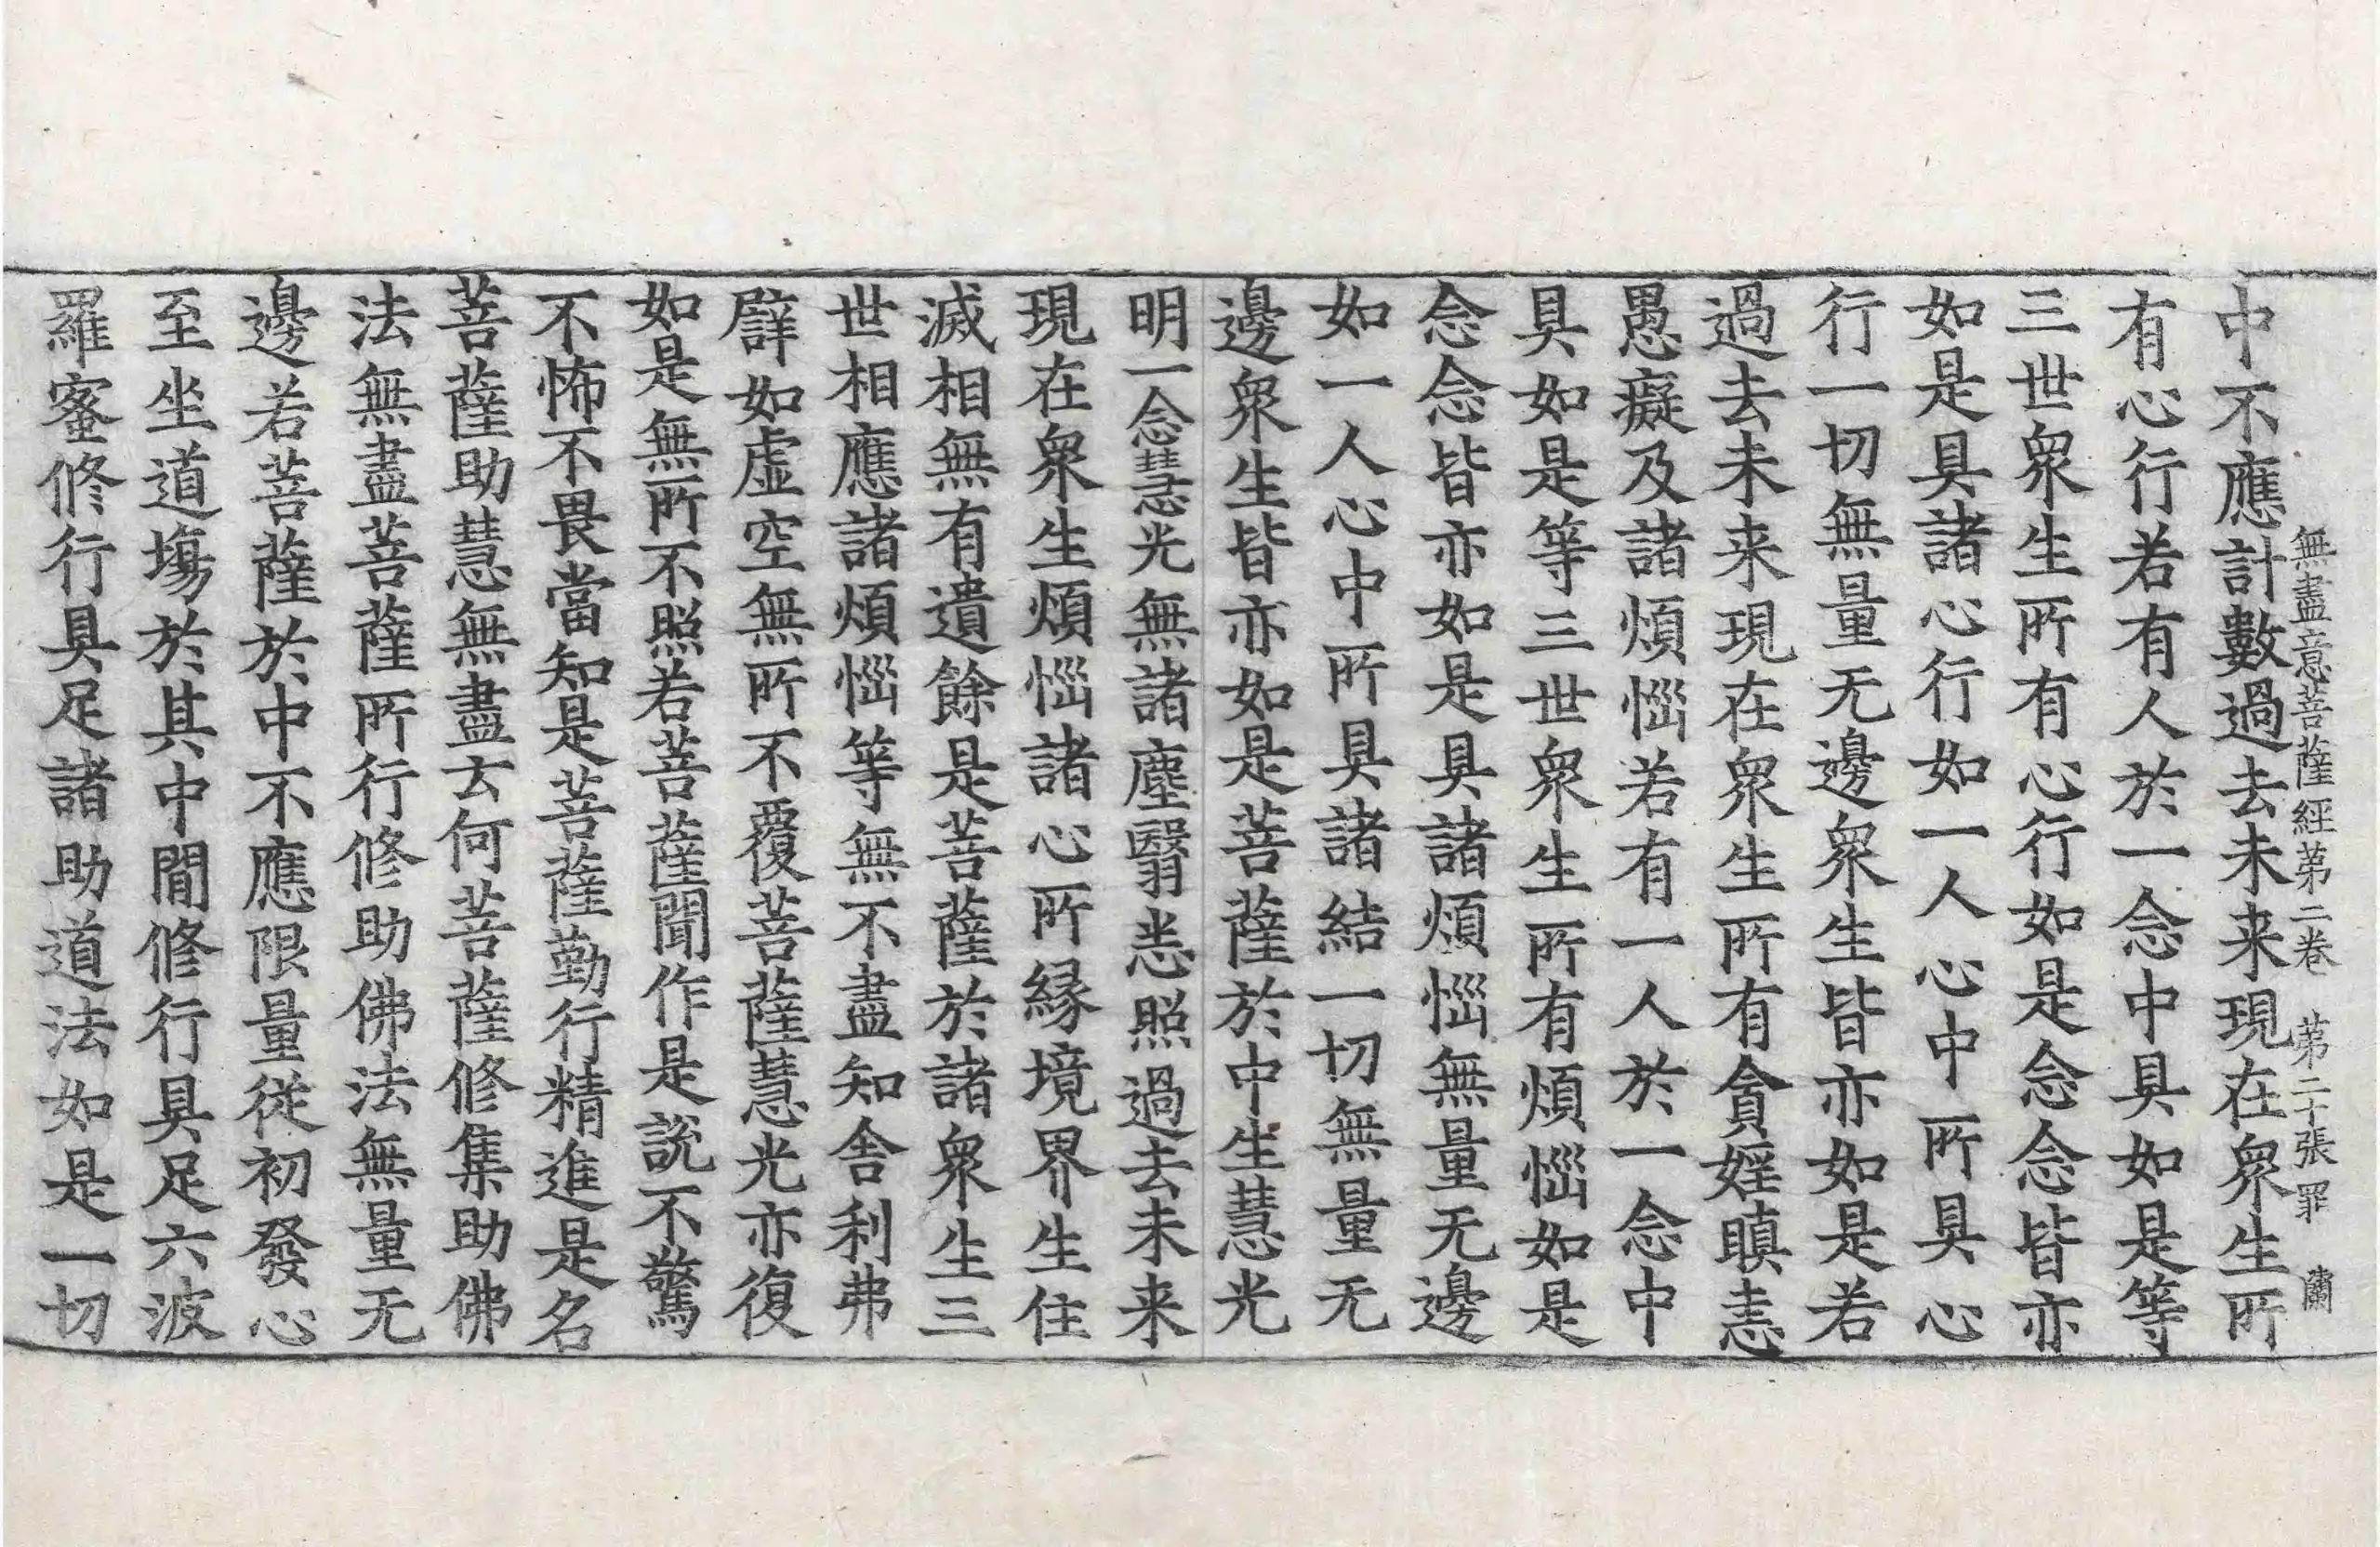 無盡意菩薩經第二卷　第二十張罪　肅
中不應計數過去未来現在衆生所
有心行若有人於一念中具如是等
三世衆生所有心行如是念念皆亦
如是具諸心行如一人心中所具心
行一切無量无邊衆生皆亦如是若
過去未来現在衆生所有貪婬瞋恚
愚癡及諸煩惱若有一人於一念中
具如是等三世衆生所有煩惱如是
念念皆亦如是具諸煩惱無量无邊
如一人心中所具諸結一切無量无
邊衆生皆亦如是菩薩於中生慧光
明一念慧光無諸塵翳悉照過去未来
現在衆生煩惱諸心所縁境界生住
滅相無有遺餘是菩薩於諸衆生三
世相應諸煩惱等無不盡知舍利弗
譬如虚空無所不覆菩薩慧光亦復
如是無所不照若菩薩聞作是說不驚
不怖不畏當知是菩薩勤行精進是名
菩薩助慧無盡云何菩薩修集助佛
法無盡菩薩所行修助佛法無量无
邊若菩薩於中不應限量從初發心
至坐道場於其中間修行具足六波
羅蜜修行具足諸助道法如是一切